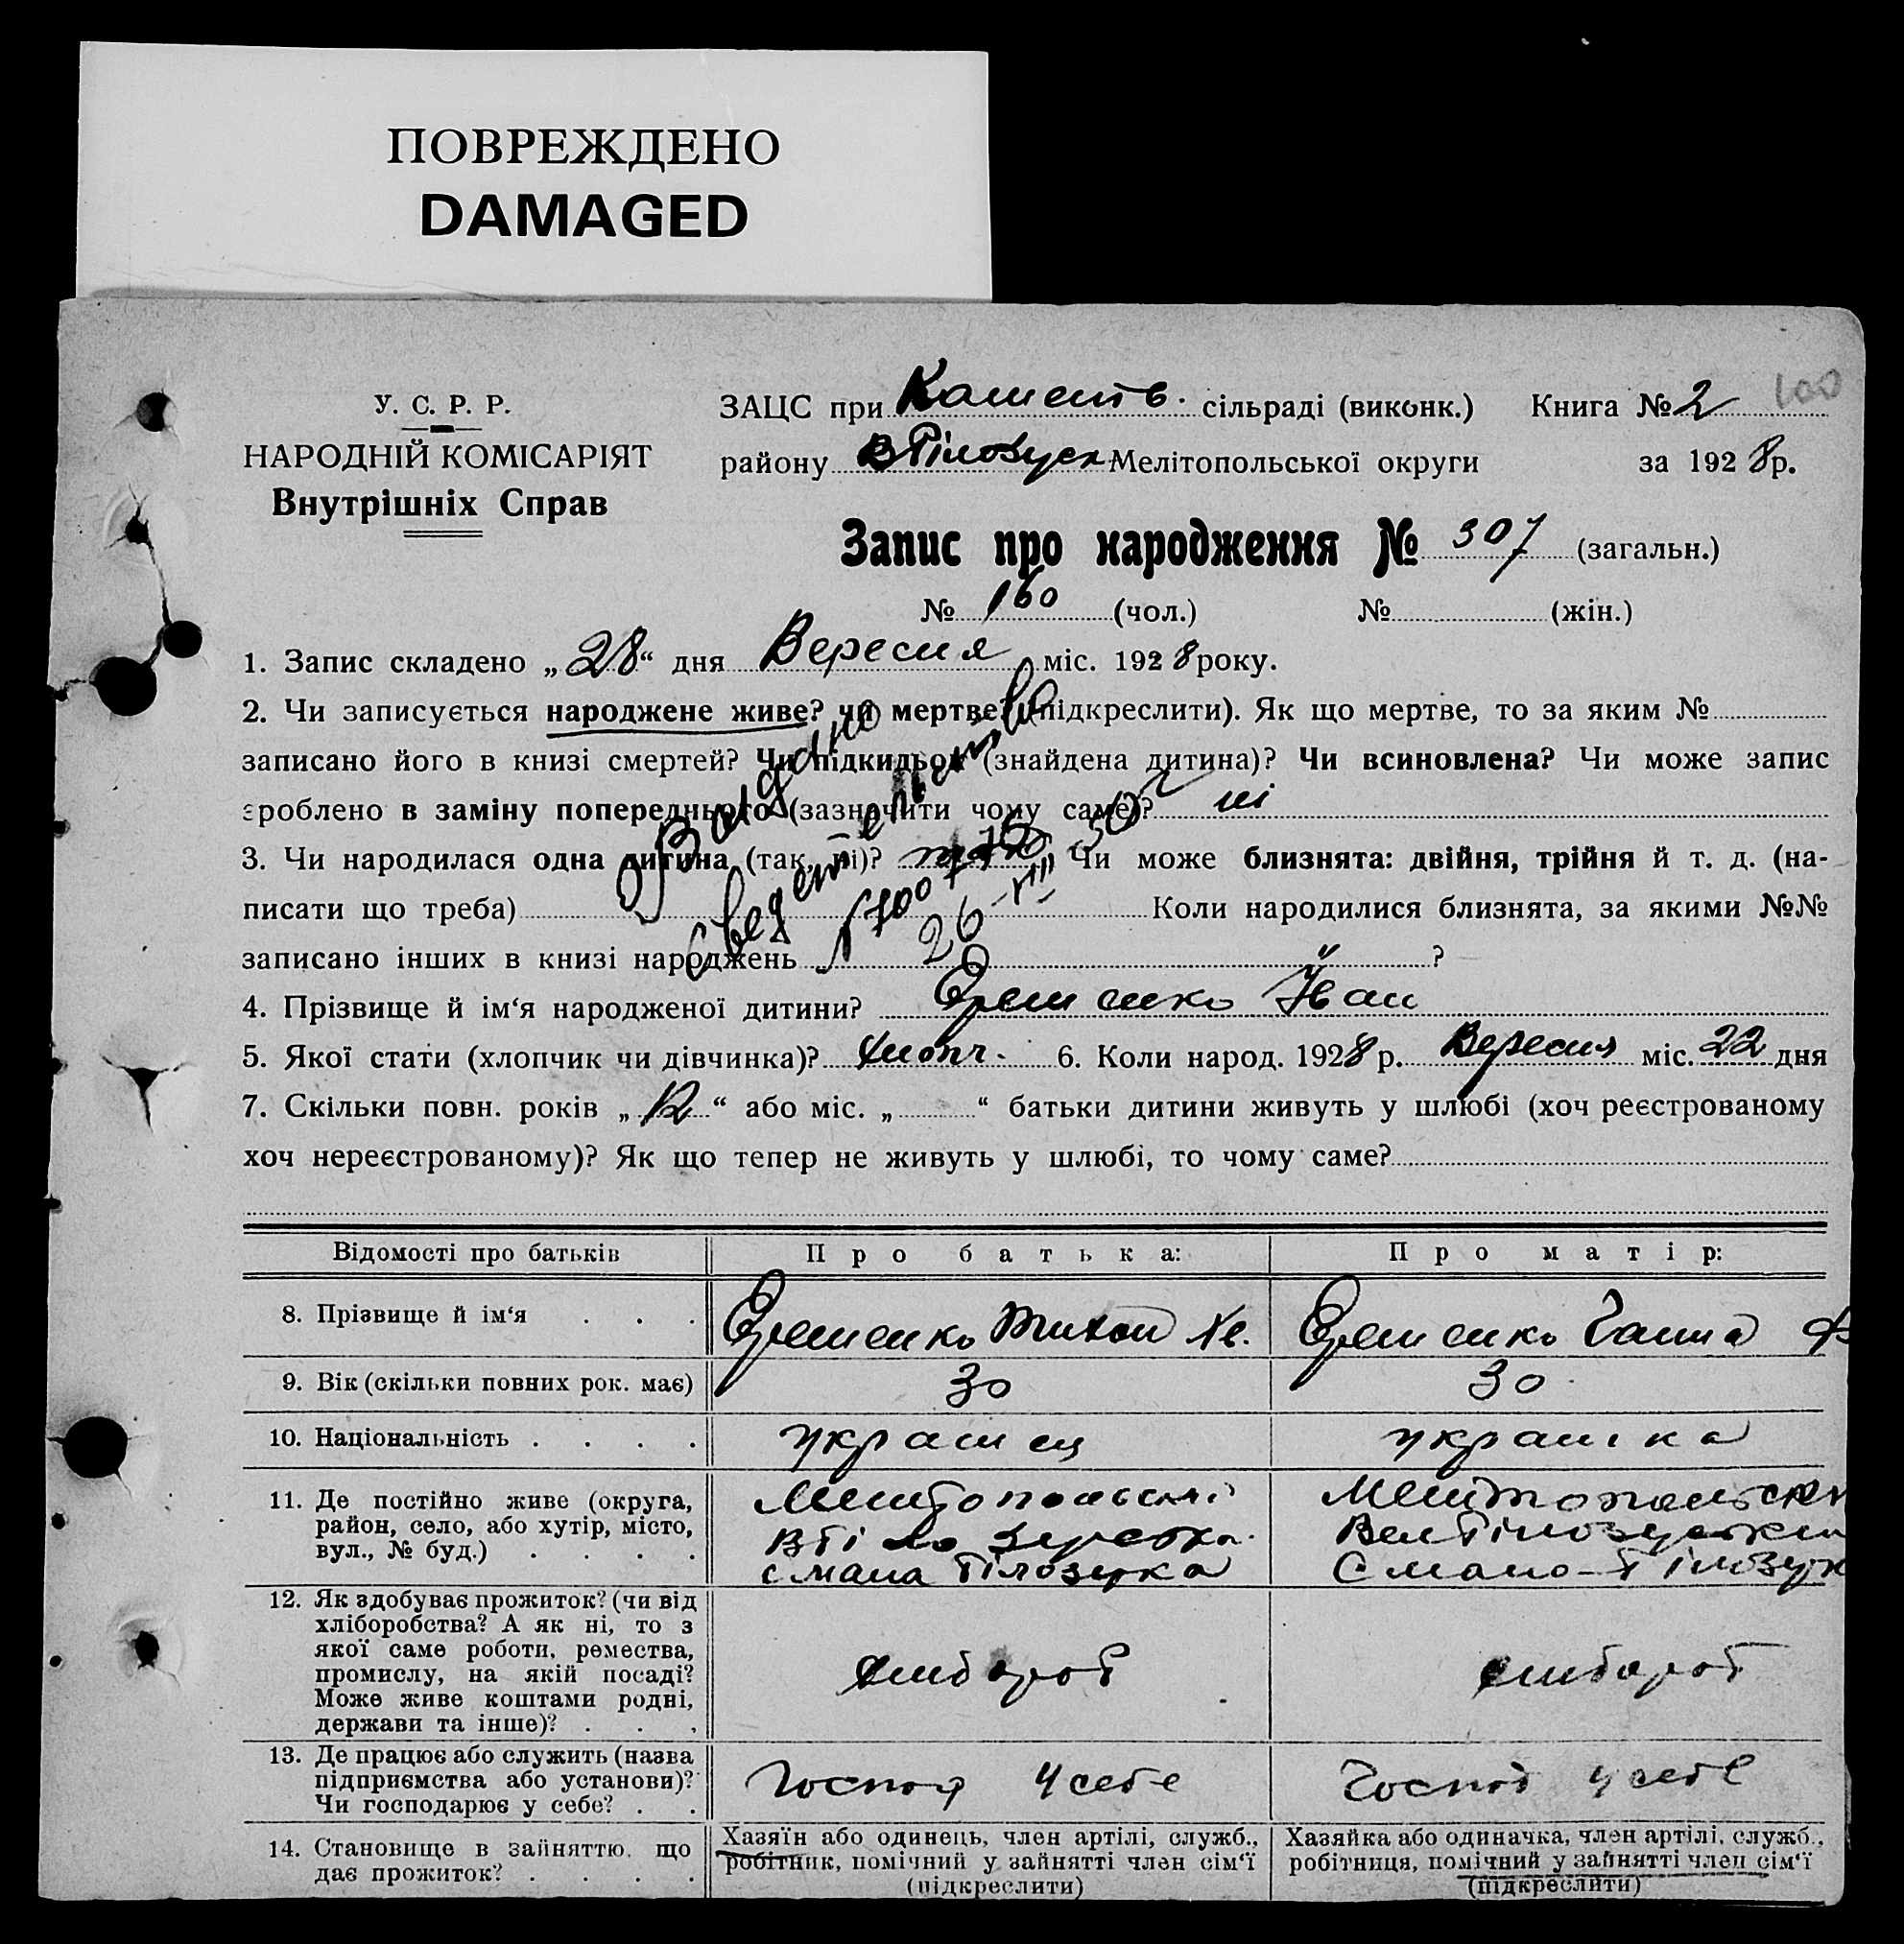 ПОВРЕЖДЕНО
DAMAGED
У. С. Р. Р.
НАРОДНІЙ КОМІСАРІЯТ
Внутрішніх Справ
ЗАЦС при сільраді (виконк.) Книга № 2 100
району Мелітопольської округи за 1928 р.
Запис про народження № 307 (загальн.)
№ 160 (чол.) № (жін.)
1. Запис складено „28“ дня Вересня міс. 1928 року.
2. Чи записується народжене живе? чи мертве? (підкреслити). Як що мертве, то за яким №
записано його в книзі смертей? Чи підкидьок (знайдена дитина)? Чи всиновлена? Чи може запис
зроблено в заміну попереднього (зазначити чому саме)? ні
3. Чи народилася одна дитина (так, ні)? так Чи може близнята: двійня, трійня й т. д. (на-
писати що треба) Коли народилися близнята, за якими №№
записано інших в книзі народжень ?
4. Прізвище й ім‘я народженої дитини? Єременко Іван
5. Якої стати (хлопчик чи дівчинка)? хлопч. 6. Коли народ. 1928 р. Вересня міс. 22 дня
7. Скільки повн. років „12“ або міс. „ “ батьки дитини живуть у шлюбі (хоч реєстрованому
хоч нереєстрованому)? Як що тепер не живуть у шлюбі, то чому саме?
Відомості про батьків Про батька: Про матір:
8. Прізвище й ім‘я . . . Єременко Тихон Єременко Ганна
9. Вік (скільки повних рок. має) 30 30
10. Національність . . . . украинец українка
11. Де постійно живе (округа,
район, село, або хутір, місто,
вул., № буд.) . . . .
с мала Білозерка
12. Як здобуває прожиток? (чи від
хліборобства? А як ні, то з
якої саме роботи, ремества,
промислу, на якій посаді?
Може живе коштами родні,
держави та інше)? . . .
хлібороб хлібороб
13. Де працює або служить (назва
підприємства або установи)?
Чи господарює у себе? . .
Господ у себе Господ у себе
14. Становище в зайняттю, що
дає прожиток? . . . .
Хазяїн або одинець, член артілі, служб.,
робітник, помічний у зайнятті член сім‘ї
(підкреслити)
Хазяйка або одиначка, член артілі, служб.,
робітниця, помічний у зайнятті член сім‘ї
(підкреслити)